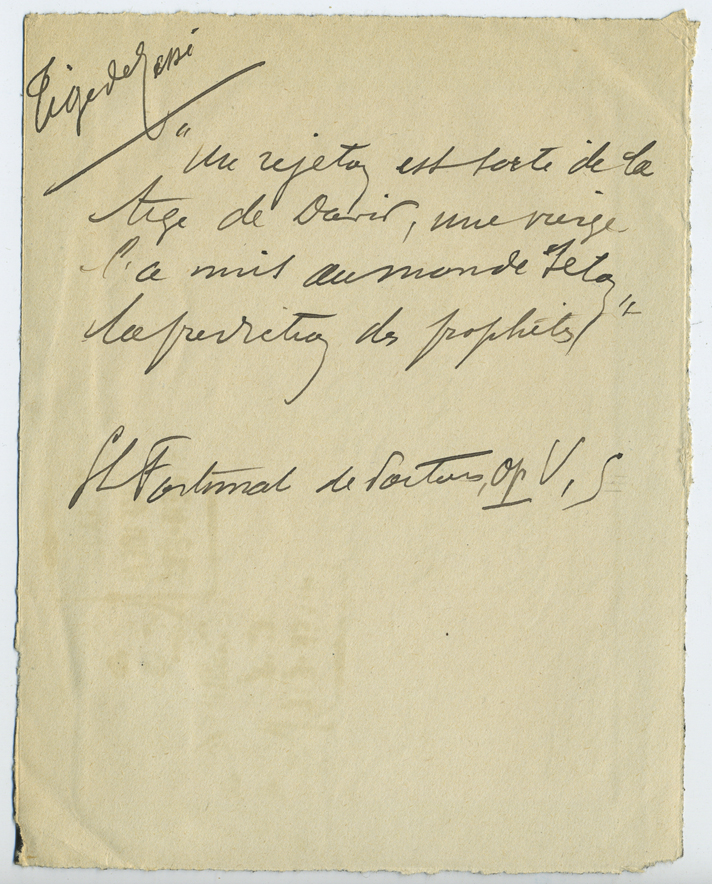 Tige de Jessé
"Un rejeton est sorti de la
tige de David, une vierge
l'a mis au monde selon
la prédiction des prophètes"
St Fortunat de Poitiers, op V, 5